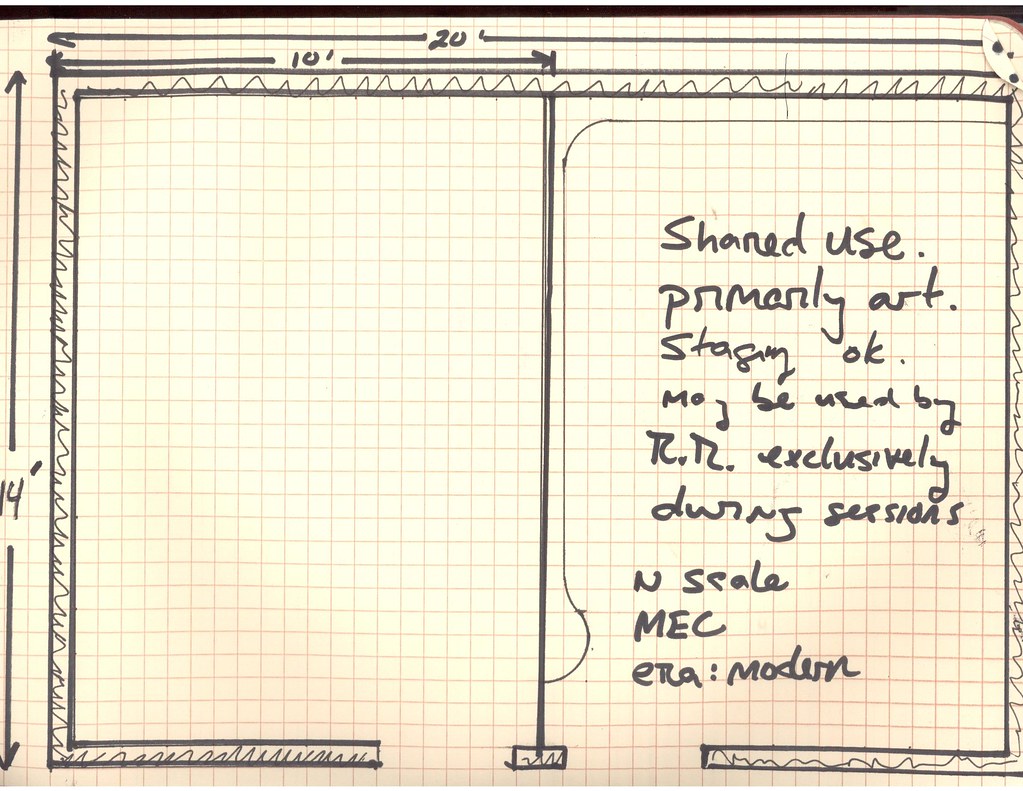 20'
10'
14'
Shared use.
primarily art.
Staging ok.
may be used by
R.R. exclusively
during sessions
N scale
MEC
era: modern